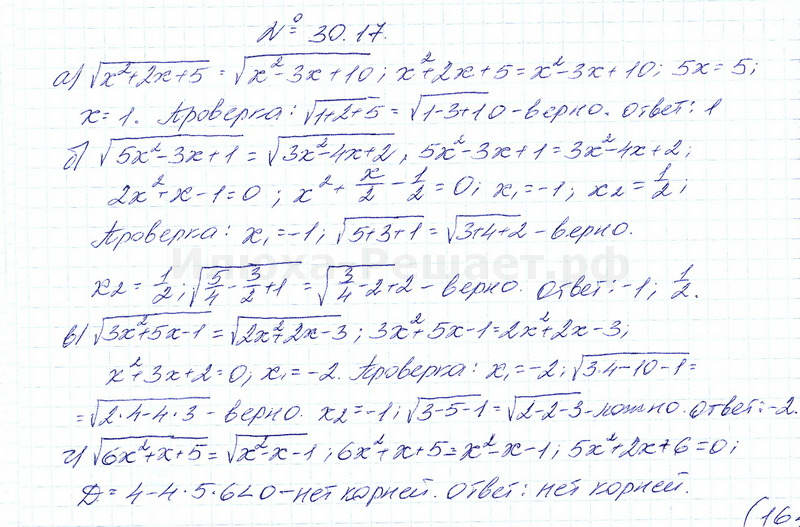 № 30.17.
а) √(x²+2x+5) = √(x²-3x+10); x²+2x+5 = x²-3x+10; 5x = 5;
x = 1. Проверка: √(1+2+5) = √(1-3+10) - верно. Ответ: 1
б) √(5x²-3x+1) = √(3x²-4x+2), 5x²-3x+1 = 3x²-4x+2;
2x²+x-1=0; x²+x/2-1/2=0; x₁=-1; x₂=1/2;
Проверка: x₁=-1; √(5+3+1) = √(3+4+2) - верно.
Илюха-Решает.рф
x₂=1/2; √(5/4-3/2+1) = √(3/4-2+2) - верно. Ответ: -1; 1/2.
в) √(3x²+5x-1) = √(2x²+2x-3); 3x²+5x-1=2x²+2x-3;
x²+3x+2=0; x₁=-2. Проверка: x₁=-2; √(3·4-10-1) =
= √(2·4-4·3) - верно. x₂=-1; √(3-5-1) = √(2-2-3) - ложно. Ответ: -2.
г) √(6x²+x+5) = √(x²-x-1); 6x²+x+5=x²-x-1; 5x²+2x+6=0;
D = 4-4·5·6<0 - нет корней. Ответ: нет корней.